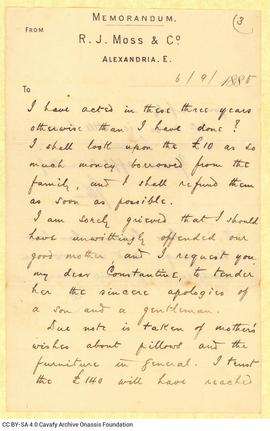 MEMORANDUM.
(3)
FROM
R. J. MOSS & Co.
ALEXANDRIA. E.
6/9/1885
TO
I have acted in these three years
otherwise than I have done?
I shall look upon the £10 as so
much money borrowed from the
family, and I shall refund them
as soon as possible.
I am sorely grieved that I should
have unwittingly offended our
good mother and I request you
my dear Constantine, to tender
her the sincere apologies of
a son and a gentleman.
Due note is taken of mother's
wishes about pillows and the
furniture in general. I trust
the £140 will have reached
CC BY-SA 4.0 Cavafy Archive Onassis Foundation